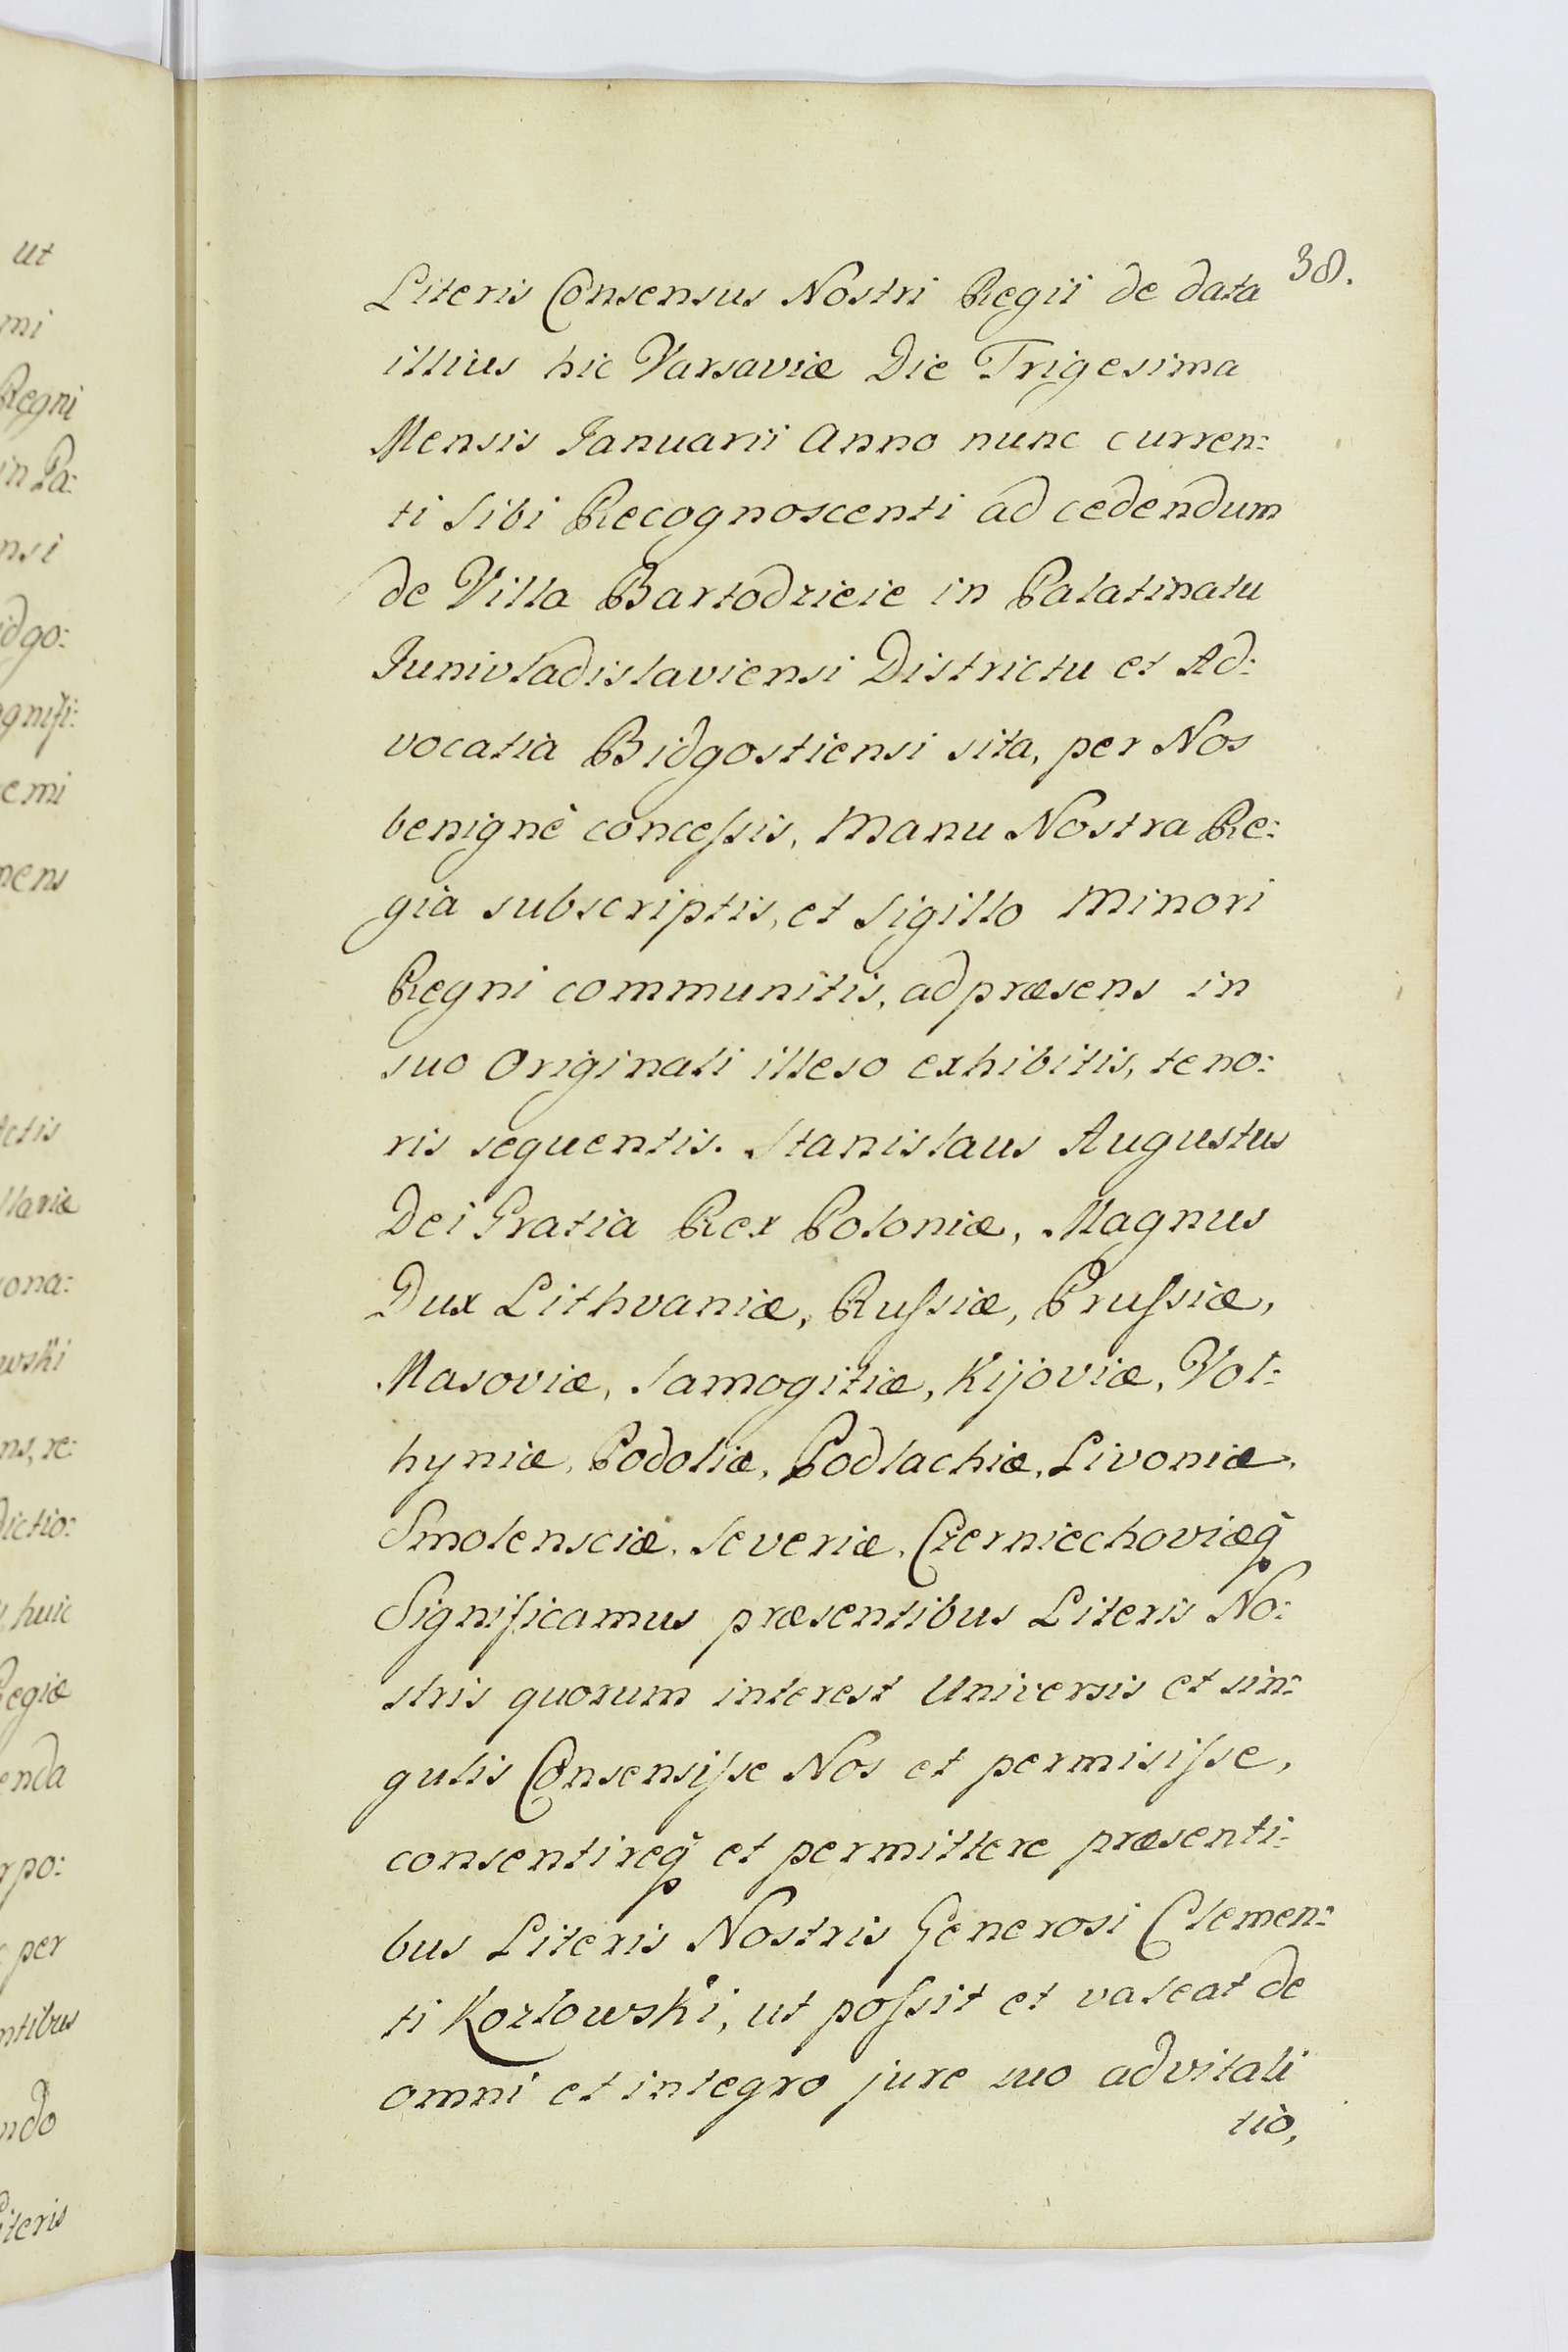 ut
mi
Regni
in Pa:
nsi
idgo:
gnifi:
emi
mens
Actis
llariæ
iona:
wski
ns, re:
dictio:
huic
Regiæ
enda
rpo:
per
ntibus
ndo
Literis
38.
Literis Consensus Nostri Regii de data
illius hic Varsaviæ Die Trigesima
Mensis Januarii Anno nunc curren:
ti sibi Recognoscenti ad cedendum
de Villa Bartodzieie in Palatinatu
Junivladislaviensi Districtu et Ad:
vocatia Bidgostiensi sita, per Nos
benignè conceſsis, Manu Nostra Re:
gia subscriptis, et Sigillo Minori
Regni communitis, ad præsens in
suo Originali illeso exhibitis, teno:
ris sequentis. Stanislaus Augustus
Dei Gratia Rex Poloniæ, Magnus
Dux Lithvaniæ, Ruſsiæ, Pruſsiæ,
Masoviæ, Samogitiæ, Kijoviæ, Vol:
hyniæ, Podoliæ, Podlachiæ, Livoniæ,
Smolensciæ, Severiæ, Czerniechoviæq̃
Significamus præsentibus Literis No:
stris quorum interest Universis et sin:
gulis Consensiſse Nos et permisiſse,
consentireq̃ et permittere præsenti:
bus Literis Nostris Generosi Clemen:
ti Kozlowski, ut poſsit et valeat de
omni et integro jure suo advitali
tiò,